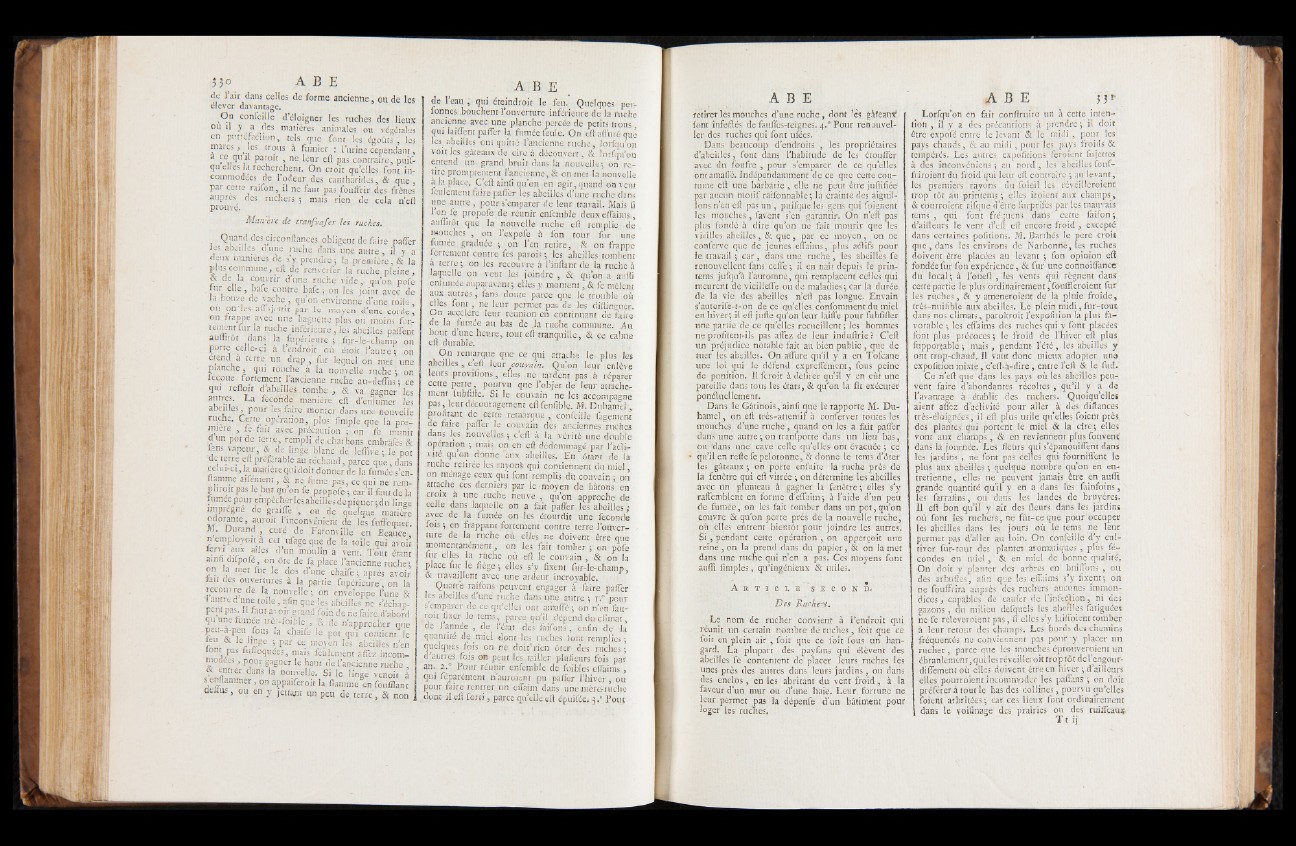 330 A B E
de l'air dans celles de forme ancienne, ou de les
élever davantage.
On conseille d'éloigner les ruches des lieux
où il y a des matières animales ou végétales
en putréfaction, tels que sont les égouts, les
mares, les trous à fumier ; l'urine cependant,
à ce qu'il paroît, ne leur est pas contraire, puis-
qu'elles la recherchent. On croit qu'elles sont in-
commodées de l'odeur des cantharides, & que,
par cette raison, il ne faut pas souffrir des frênes
auprès des ruchers ; mais rien de cela n'est
prouvé.
Manière de transvaser les ruches.
Quand des circonstances obligent de faire passer
les abeilles d'une ruche dans une autre, il y a
deux manières de s'y prendre ; la première, & la
plus commune, est de renverser la ruche pleine,
& de la couvrir d'une ruche vide, qu'on pose
sur elle, base contre base ; on les joint avec de
la bouse de vache, qu'on environne d'une toile,
ou on les assujettit par le moyen d'une corde,
on frappe avec une baguette plus ou moins for-
tement sur la ruche inférieure, les abeilles passent
aussitôt dans la supérieure ; sur-le-champ on
porte celle-ci à l'endroit où étoit l'autre ; on
étend à terre un drap, sur lequel on met une
planche, qui touche à la nouvelle ruche ; on
secoue fortement l'ancienne ruche au-dessus ; ce
qui restoit d'abeilles tombe, & va gagner les
autres. La seconde manière est d'enfumer les
abeilles, pour les faire monter dans une nouvelle
ruche. Cette opération, plus simple que la pre-
mière, se fait avec précaution ; on se munit
d'un pot de terre, rempli de charbons embrasés &
sans vapeur, & de linge blanc de lessive ; le pot
de terre est préférable au réchaud, parce que, dans
celui-ci, la matière qui doit donner de la fumée s'en-
flamme aisément, & ne fume pas, ce qui ne rem-
pliroit pas le but qu'on se propose ; car il faut de la
fumée pour empêcher les abeilles de piquer ; du linge
imprégné de graisse, ou de quelque matière
odorante, auroit l'inconvénient de les suffoquer.
M. Durand, curé de Faronville en Beauce,
n'employoit à cet usage que de la toile qui avoit
servi aux ailes d'un moulin à vent. Tout étant
ainsi disposé, on ôte de sa place l'ancienne ruche ;
on la met sur le dos d'une chaise ; après avoir
fait des ouvertures à la partie supérieure, on la
recouvre de la nouvelle ; on enveloppe l'une &
l'autre d'une toile, afin que les abeilles ne s'échap-
pent pas. Il faut avoir grand soin de ne faire d'abord
qu'une fumée très-foible, & de n'approcher que
peu-à-peu sous la chaise le pot qui contient le
feu & le linge ; par ce moyen les abeilles n'en
sont pas suffoquées, mais seulement assez incom-
modées, pour gagner le haut de l'ancienne ruche,
& entrer dans la nouvelle. Si le linge venoit à
s'enflammer, on appaiseroit la flamme en soufflant
dessus, ou en y jettant un peu de terre, & non
A B E
de l'eau, qui éteindroit le feu. Quelques per-
sonnes bouchent l'ouverture inférieure de la ruche
ancienne avec une planche percée de petits trous,
qui laissent passer la fumée seule. On est assuré que
les abeilles ont quitté l'ancienne ruche, lorsqu'on
voit les gâteaux de cire à découvert, & lorsqu'on
entend un grand bruit dans la nouvelle ; on re-
tire promptement l'ancienne, & on met la nouvelle
à la place. C'est ainsi qu'on en agit, quand on veut
seulement faire passer les abeilles d'une ruche dans
une autre, pour s'emparer de leur travail. Mais si
l'on se propose de réunir ensemble deux essaims,
aussitôt que la nouvelle ruche est remplie de
mouches, on l'expose à son tour sur une
fumée graduée ; on l'en retire, & on frappe
fortement contre ses parois ; les abeilles tombent
à terre ; on les recouvre à l'instant de la ruche à
laquelle on veut les joindre, & qu'on a aussi
enfumée auparavant ; elles y montent, & se mêlent
aux autres, sans doute parce que le trouble où
elles sont, ne leur permet pas de les distinguer.
On accélère leur réunion en continuant de faire
de la fumée au bas de la ruche commune. Au
bout d'une heure, tout est tranquille, & ce calme
est durable.
On remarque que ce qui attache le plus les
abeilles, c'est leur couvain. Qu'on leur enlève
leurs provisions, elles ne tardent pas à réparer
cette perte, pourvu que l'objet de leur attache-
ment subsiste. Si le couvain ne les accompagne
pas, leur découragement est sensible. M. Duhamel,
profitant de cette remarque, conseille sagement
de faire passer le couvain des anciennes ruches
dans les nouvelles ; c'est à la vérité une double
opération ; mais on en est dédommagé par l'acti-
vité qu'on donne aux abeilles. En ôtant de la
ruche retirée les rayons qui contiennent du miel,
on ménage ceux qui sont remplis du couvain ; on
attache ces derniers par le moyen de bâtons en
croix à une ruche neuve, qu'on approche de
celle dans laquelle on a fait passer les abeilles ;
avec de la fumée on les étourdit une seconde
fois ; en frappant fortement contre terre l'ouver-
ture de la ruche où elles ne doivent être que
momentanément, on les fait tomber ; on pose
sur elles la ruche où est le couvain, & on la
place sur le siège ; elles s'y fixent sur-le-champ,
& travaillent avec une ardeur incroyable.
Quatre raisons peuvent engager à faire passer
les abeilles d'une ruche dans une autre ; 1.° pour
s'emparer de ce qu'elles ont amassé ; on n'en sau-
roit fixer le tems, parce qu'il dépend du climat,
de l'année, de l'état des saisons, enfin de la
quantité de miel dont les ruches sont remplies ;
quelques fois on ne doit rien ôter des ruches ;
d'autres fois on peut les tailler plusieurs fois par
an. 2.° Pour réunir ensemble de foibles essaims,
qui séparément n'auroient pu passer l'hiver, ou
pour faire rentrer un essaim dans une mère-ruche
dont il est sorti, parce qu'elle est épuisée. 3.° Pour
A B E
retirer les mouches d'une ruche, dont les gâteaux
sont infectés de fausses-teignes. 4.° Pour renouvel-
ler des ruches qui sont usées.
Dans beaucoup d'endroits, les propriétaires
d'abeilles, sont dans l'habitude de les étouffer
avec du soufre, pour s'emparer de ce qu'elles
ont amassé. Indépendamment de ce que cette cou-
tume est une barbarie, elle ne peut être justifiée
par aucun motif raisonnable ; la crainte des aiguil-
lons n'en est pas un, puisque les gens qui soignent
les mouches, savent s'en garantir. On n'est pas
plus fondé à dire qu'on ne fait mourir que les
vieilles abeilles, & que, par ce moyen, on ne
conserve que de jeunes essaims, plus actifs pour
le travail ; car, dans une ruche, les abeilles se
renouvellent sans cesse ; il en naît depuis le prin-
tems jusqu'à l'automne, qui remplacent celles qui
meurent de vieillesse ou de maladies ; car la durée
de la vie des abeilles n'est pas longue. Envain
s'autorise-t-on de ce qu'elles consomment du miel
en hiver ; il est juste qu'on leur laisse pour subsister
une partie de ce qu'elles recueillent ; les hommes
ne profitent-ils pas assez de leur industrie ? C'est
un préjudice notable fait au bien public, que de
tuer les abeilles. On assure qu'il y a en Toscane
une loi qui le défend expressément, sous peine
de punition. Il seroit à désirer qu'il y en eût une
pareille dans tous les états, & qu'on la fît exécuter
ponctuellement.
Dans le Gâtinois, ainsi que le rapporte M. Du-
hamel, on est très-attentif à conserver toutes les
mouches d'une ruche, quand on les a fait passer
dans une autre ; on transporte dans un lieu bas,
ou dans une cave celle qu'elles ont évacuée ; ce
qu'il en reste se pelotonne, & donne le tems d'ôter
les gâteaux ; on porte ensuite la ruche près de
la fenêtre qui est vitrée, on détermine les abeilles
avec un plumeau à gagner la fenêtre ; elles s'y
rassemblent en forme d'essaim ; à l'aide d'un peu
de fumée, on les fait tomber dans un pot, qu'on
couvre & qu'on porte près de la nouvelle ruche,
où elles entrent bientôt pour joindre les autres.
Si, pendant cette opération, on apperçoit une
reine, on la prend dans du papier, & on la met
dans une ruche qui n'en a pas. Ces moyens sont
aussi simples, qu'ingénieux & utiles.
ARTICLE SECOND.
Des Ruchers.
Le nom de rucher convient à l'endroit qui
réunit un certain nombre de ruches, soit que ce
soit en plein air, soit que ce soit sous un han-
gard. La plupart des paysans qui élèvent des
abeilles se contentent de placer leurs ruches les
unes près des autres dans leurs jardins, ou dans
des enclos, en les abritant du vent froid, à la
faveur d'un mur ou d'une haie. Leur fortune ne
leur permet pas la dépense d'un bâtiment pour
loger les ruches.
A B E 331
Lorsqu'on en fait construire un à cette inten-
tion, il y a des précautions à prendre ; il doit
être exposé entre le levant & le midi, pour les
pays chauds, & au midi, pour les pays froids &
tempérés. Les autres expositions seroient sujettes
à des inconvéniens ; au nord, les abeilles souf-
friroient du froid qui leur est contraire ; au levant,
les premiers rayons du soleil les réveilleroient
trop tôt au printems ; elles iroient aux champs,
& courroient risque d'être surprises par les mauvais
tems, qui sont fréquens dans cette saison ;
d'ailleurs le vent d'est est encore froid, excepté
dans certaines positions. M. Barthès le père croit
que, dans les environs de Narbonne, les ruches
doivent être placées au levant ; son opinion est
fondée sur son expérience, & sur une connoissance
du local ; à l'ouest, les vents qui règnent dans
cette partie le plus ordinairement, souffleroient sur
les ruches, & y ameneroient de la pluie froide,
très-nuisible aux abeilles. Le plein midi, sur-tout
dans nos climats, paroîtroit l'exposition la plus fa-
vorable ; les essaims des ruches qui y sont placées
sont plus précoces ; le froid de l'hiver est plus
supportable ; mais, pendant l'été, les abeilles y
ont trop-chaud. Il vaut donc mieux adopter une
exposition mixte, c'est-à-dire, entre l'est & le sud.
Ce n'est que dans les pays où les abeilles peu-
vent faire d'abondantes récoltes, qu'il y a de
l'avantage à établir des ruchers. Quoiqu'elles
aient assez d'activité pour aller à des distances
très-éloignées, il est plus utile qu'elles soient près
des plantes qui portent le miel & la cire ; elles
vont aux champs, & en reviennent plus souvent
dans la journée. Les fleurs qui s'épanouissent dans
les jardins, ne sont pas celles qui fournissent le
plus aux abeilles ; quelque nombre qu'on en en-
tretienne, elles ne peuvent jamais être en aussi
grande quantité qu'il y en a dans les sainfoins,
les sarrasins, ou dans les landes de bruyères.
Il est bon qu'il y ait des fleurs dans les jardins
où sont les ruchers, ne fût-ce que pour occuper
les abeilles dans les jours où le tems ne leur
permet pas d'aller au loin. On conseille d'y cul-
tiver sur-tout des plantes aromatiques, plus fé-
condes en miel, & en miel de bonne qualité.
On doit y planter des arbres en buissons, ou
des arbustes, afin que les essaims s'y fixent ; on
ne souffrira auprès des ruchers aucunes immon-
dices, capables de causer de l'infection, ni des
gazons, du milieu desquels les abeilles fatiguées
ne se releveroient pas, si elles s'y laissoient tomber
à leur retour des champs. Les bords des chemins
fréquentés ne conviennent pas pour y placer un
rucher, parce que les mouches éprouveroient un
ébranlement, qui les réveilleroit trop tôt de l'engour-
dissement où elles doivent être en hiver ; d'ailleurs
elles pourroient incommoder les passans ; on doit
préférer à tout le bas des collines, pourvu qu'elles
soient arbritées ; car ces lieux sont ordinairement
dans le voisinage des prairies ou des ruisseaux.
T t ij